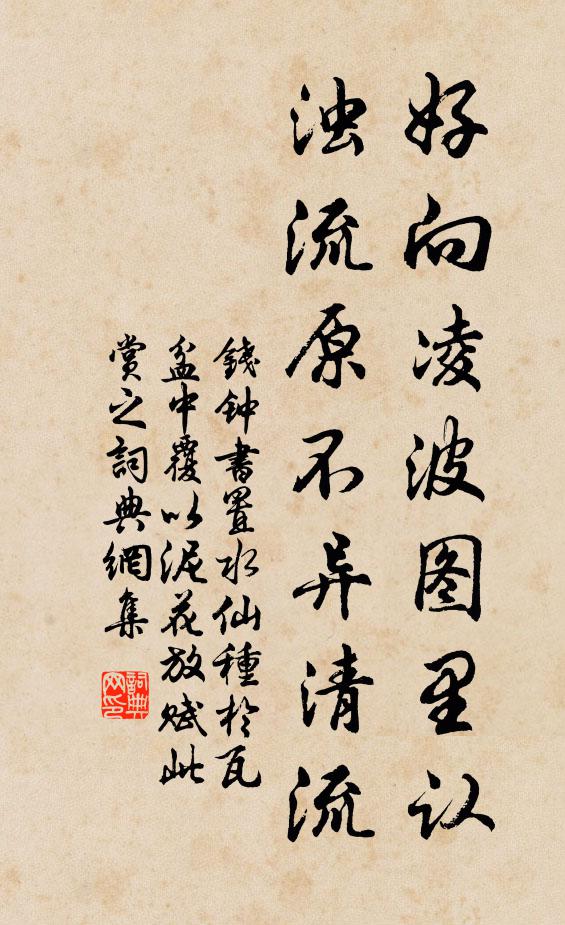 好向凌波图里认
浊流原不异清流
錢鈡書置水仙種於瓦
盆中覆以泥花放赋此
賞之詞典網集
詞典网印